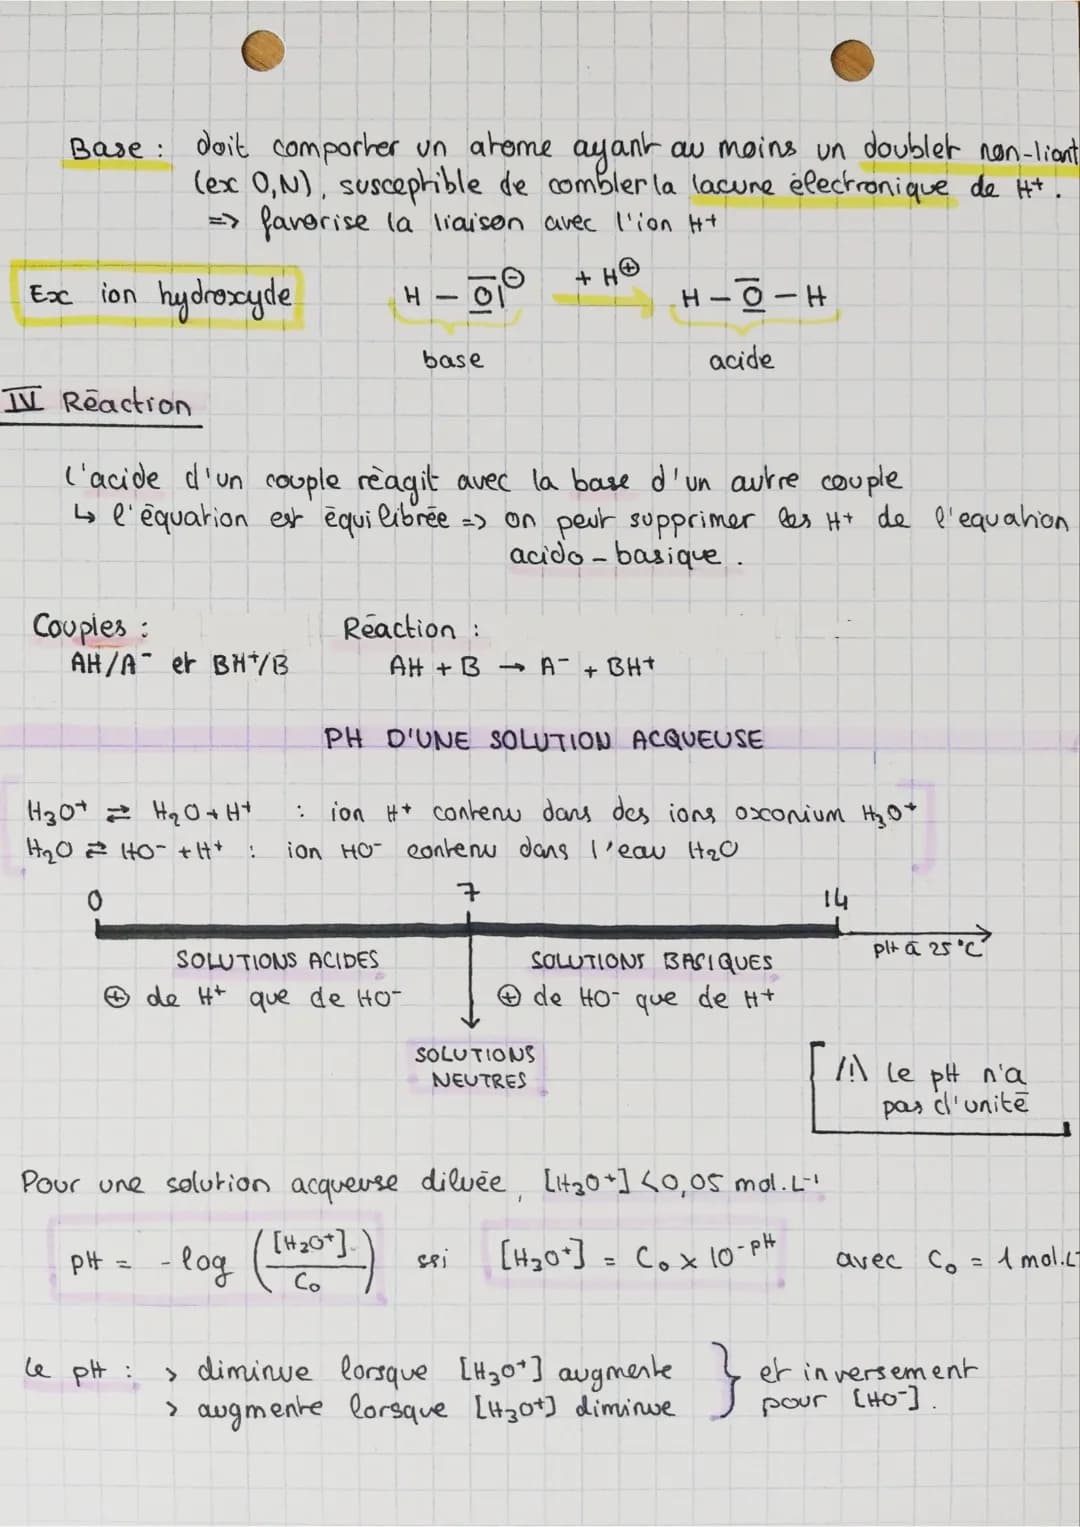 Base : doit comporter un atome ayant au moins un doublet non-liant
(ex O,N), susceptible de combler la lacune électronique de H+.
=> favorise la liaison avec l'ion H+
Ex ion hydroxyde
H - O⊖ + H⊕ → H - O - H
base acide
IV Réaction
L'acide d'un couple réagit avec la base d'un autre couple
↳ l'équation est équilibrée => on peut supprimer les H+ de l'equation
acido-basique.
Couples : Réaction :
AH/A⁻ et BH⁺/B AH + B → A⁻ + BH⁺
PH D'UNE SOLUTION ACQUEUSE
H₃O⁺ ⇄ H₂O + H⁺ : ion H⁺ contenu dans des ions oxonium H₃O⁺
H₂O ⇄ HO⁻ + H⁺ : ion HO⁻ contenu dans l'eau H₂O
0 7 14
pH à 25°C
SOLUTIONS ACIDES SOLUTIONS BASIQUES
⊕ de H⁺ que de HO⁻ ⊕ de HO⁻ que de H⁺
SOLUTIONS
NEUTRES
/!\ Le pH n'a
pas d'unité
Pour une solution acqueuse diluée, [H₃O⁺] <0,05 mol.L⁻¹
pH = -log ([H₃O⁺]/C₀) ssi [H₃O⁺] = C₀ x 10⁻ᵖᴴ avec C₀ = 1 mol.L⁻
Le pH : > diminue lorsque [H₃O⁺] augmente } et inversement
> augmente lorsque [H₃O⁺] diminue pour [HO⁻].